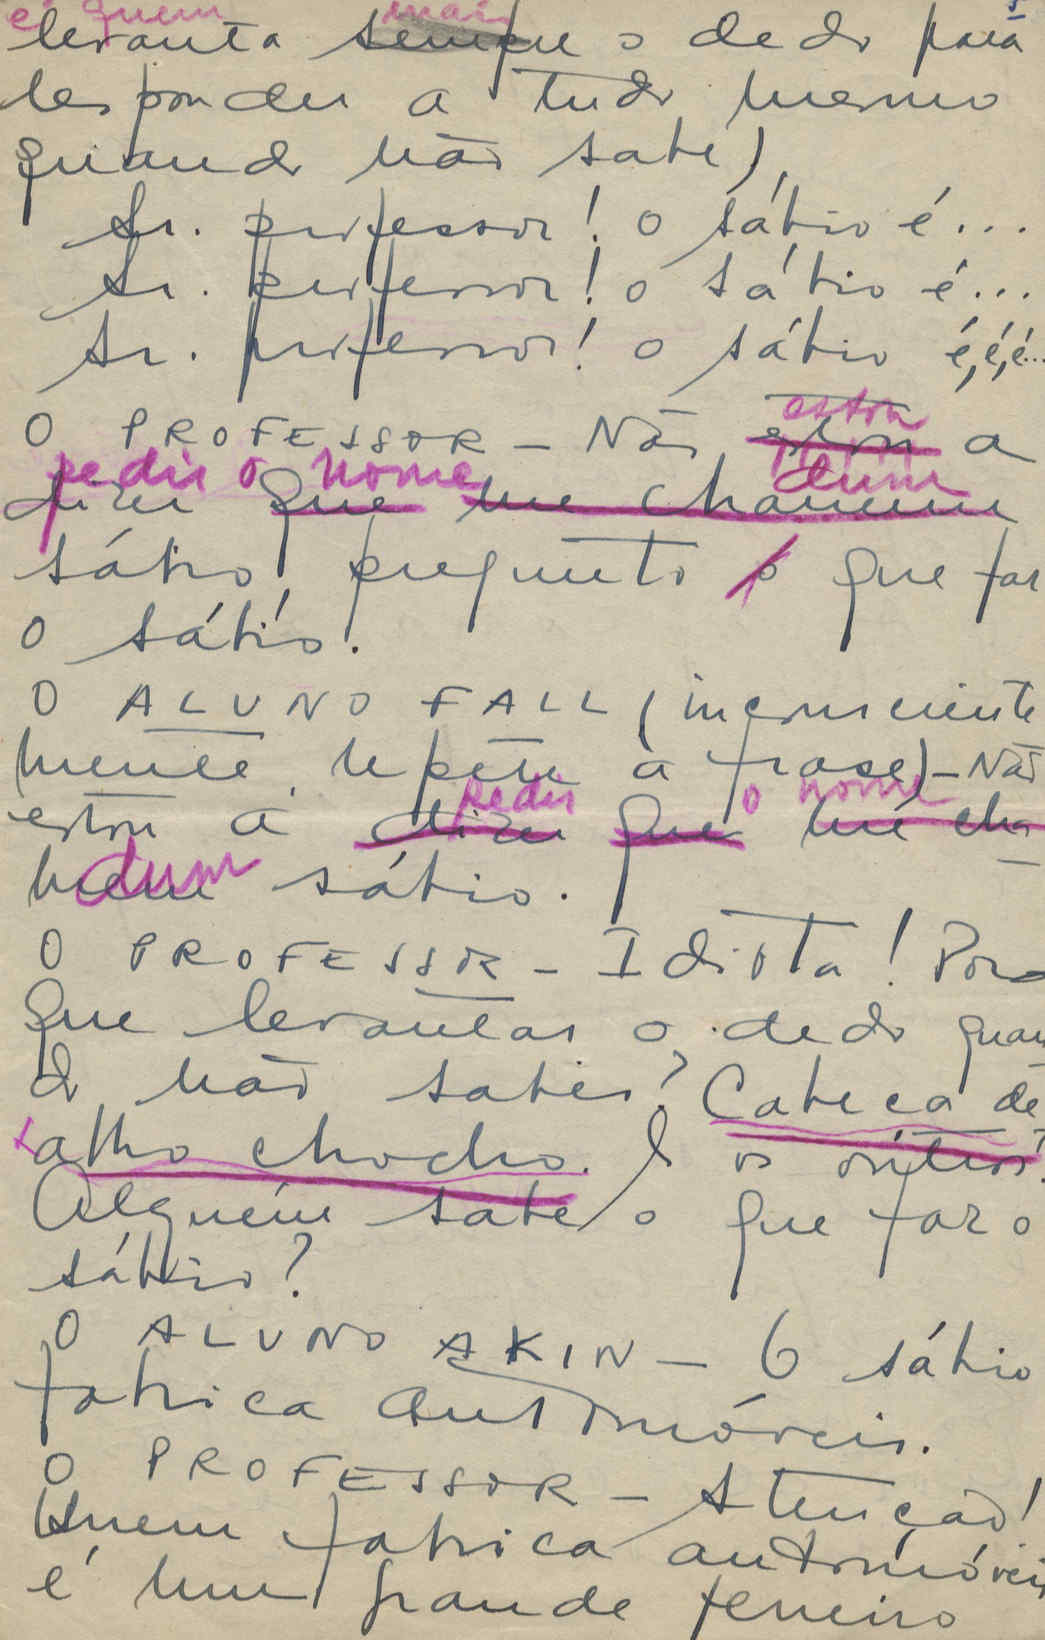 é quem mais
levanta sempre o dedo para
responder a tudo mesmo
quando não sabe)
Sr. professor! o sábio é...
Sr. professor! o sábio é...
Sr. professor! o sábio é, é, é...
estou
O PROFESSOR – Não estou a
pedir o nome dum
dizer que me chamem
sábio, pregunto o que faz
o sábio.
O ALUNO FALL (inconsciente
mente repete a frase) – Não
pedir o nome
estou a dizer que me cha
dum
mem sábio.
O PROFESSOR – Idiota! Por
que levantas o dedo quan
do não sabes? Cabeça de
alho chocho. E os outros?
Alguém sabe o que faz o
sábio?
O ALUNO AKIN – O sábio
fabrica automóveis.
O PROFESSOR – Atenção!
Quem fabrica automóveis
é um grande ferreiro